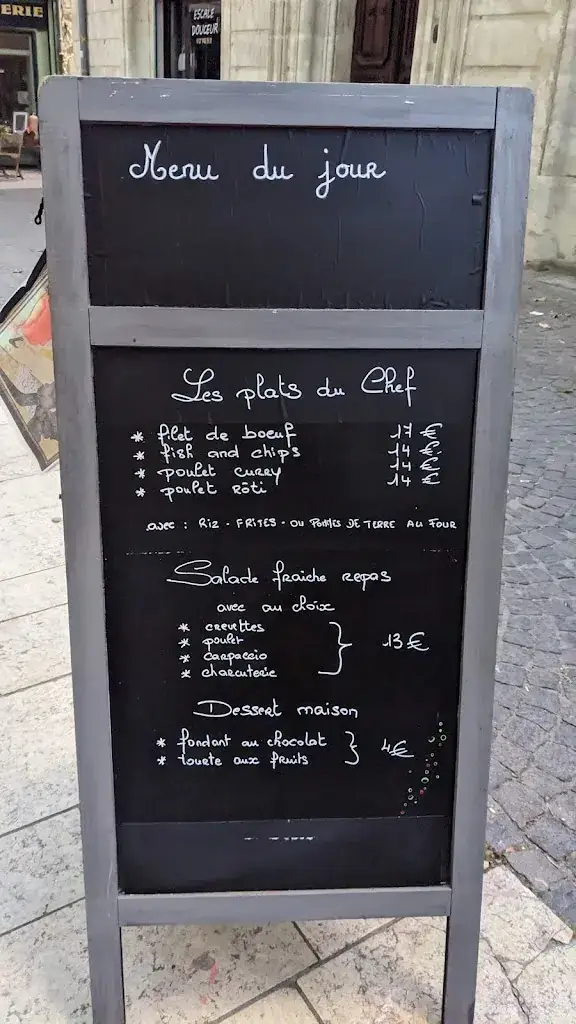 ERIE
ESCALE
DOUCEUR
Menu du jour
Les plats du Chef
* filet de boeuf 17 €
* fish and chips 14 €
* poulet curry 14 €
* poulet rôti 14 €
avec : RIZ - FRITES - OU POMMES DE TERRE AU FOUR
Salade fraiche repas
avec au choix
* crevettes
* poulet
* carpaccio
* charcuterie
13 €
Dessert maison
* fondant au chocolat
* tourte aux fruits
4€